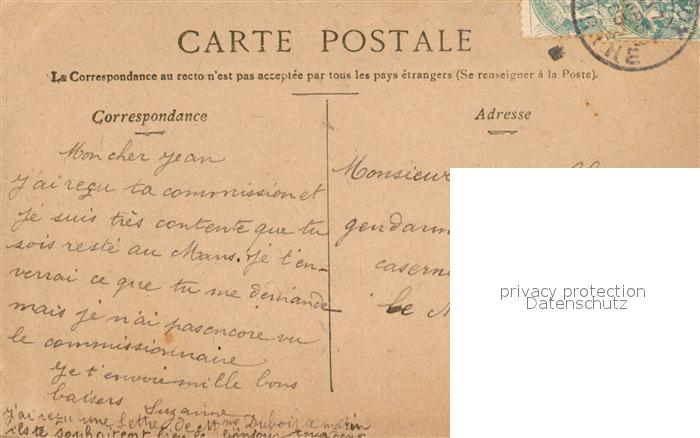 CARTE POSTALE
La Correspondance au recto n'est pas acceptée par tous les pays étrangers (Se renseigner à la Poste).
Correspondance
Mon cher Jean
J'ai reçu ta commission et
je suis très contente que tu
sois resté au Mans. Je t'en-
verrai ce que tu me demande
mais je n'ai pas encore vu
le commissionnaire
Je t'envoie mille bons
baisers Suzanne
J'ai reçu une lettre de Mme Dubois ce matin
ils te souhaitent bien le bonjour
Adresse
Monsieur
gendarm
casern
Le M
privacy protection
Datenschutz